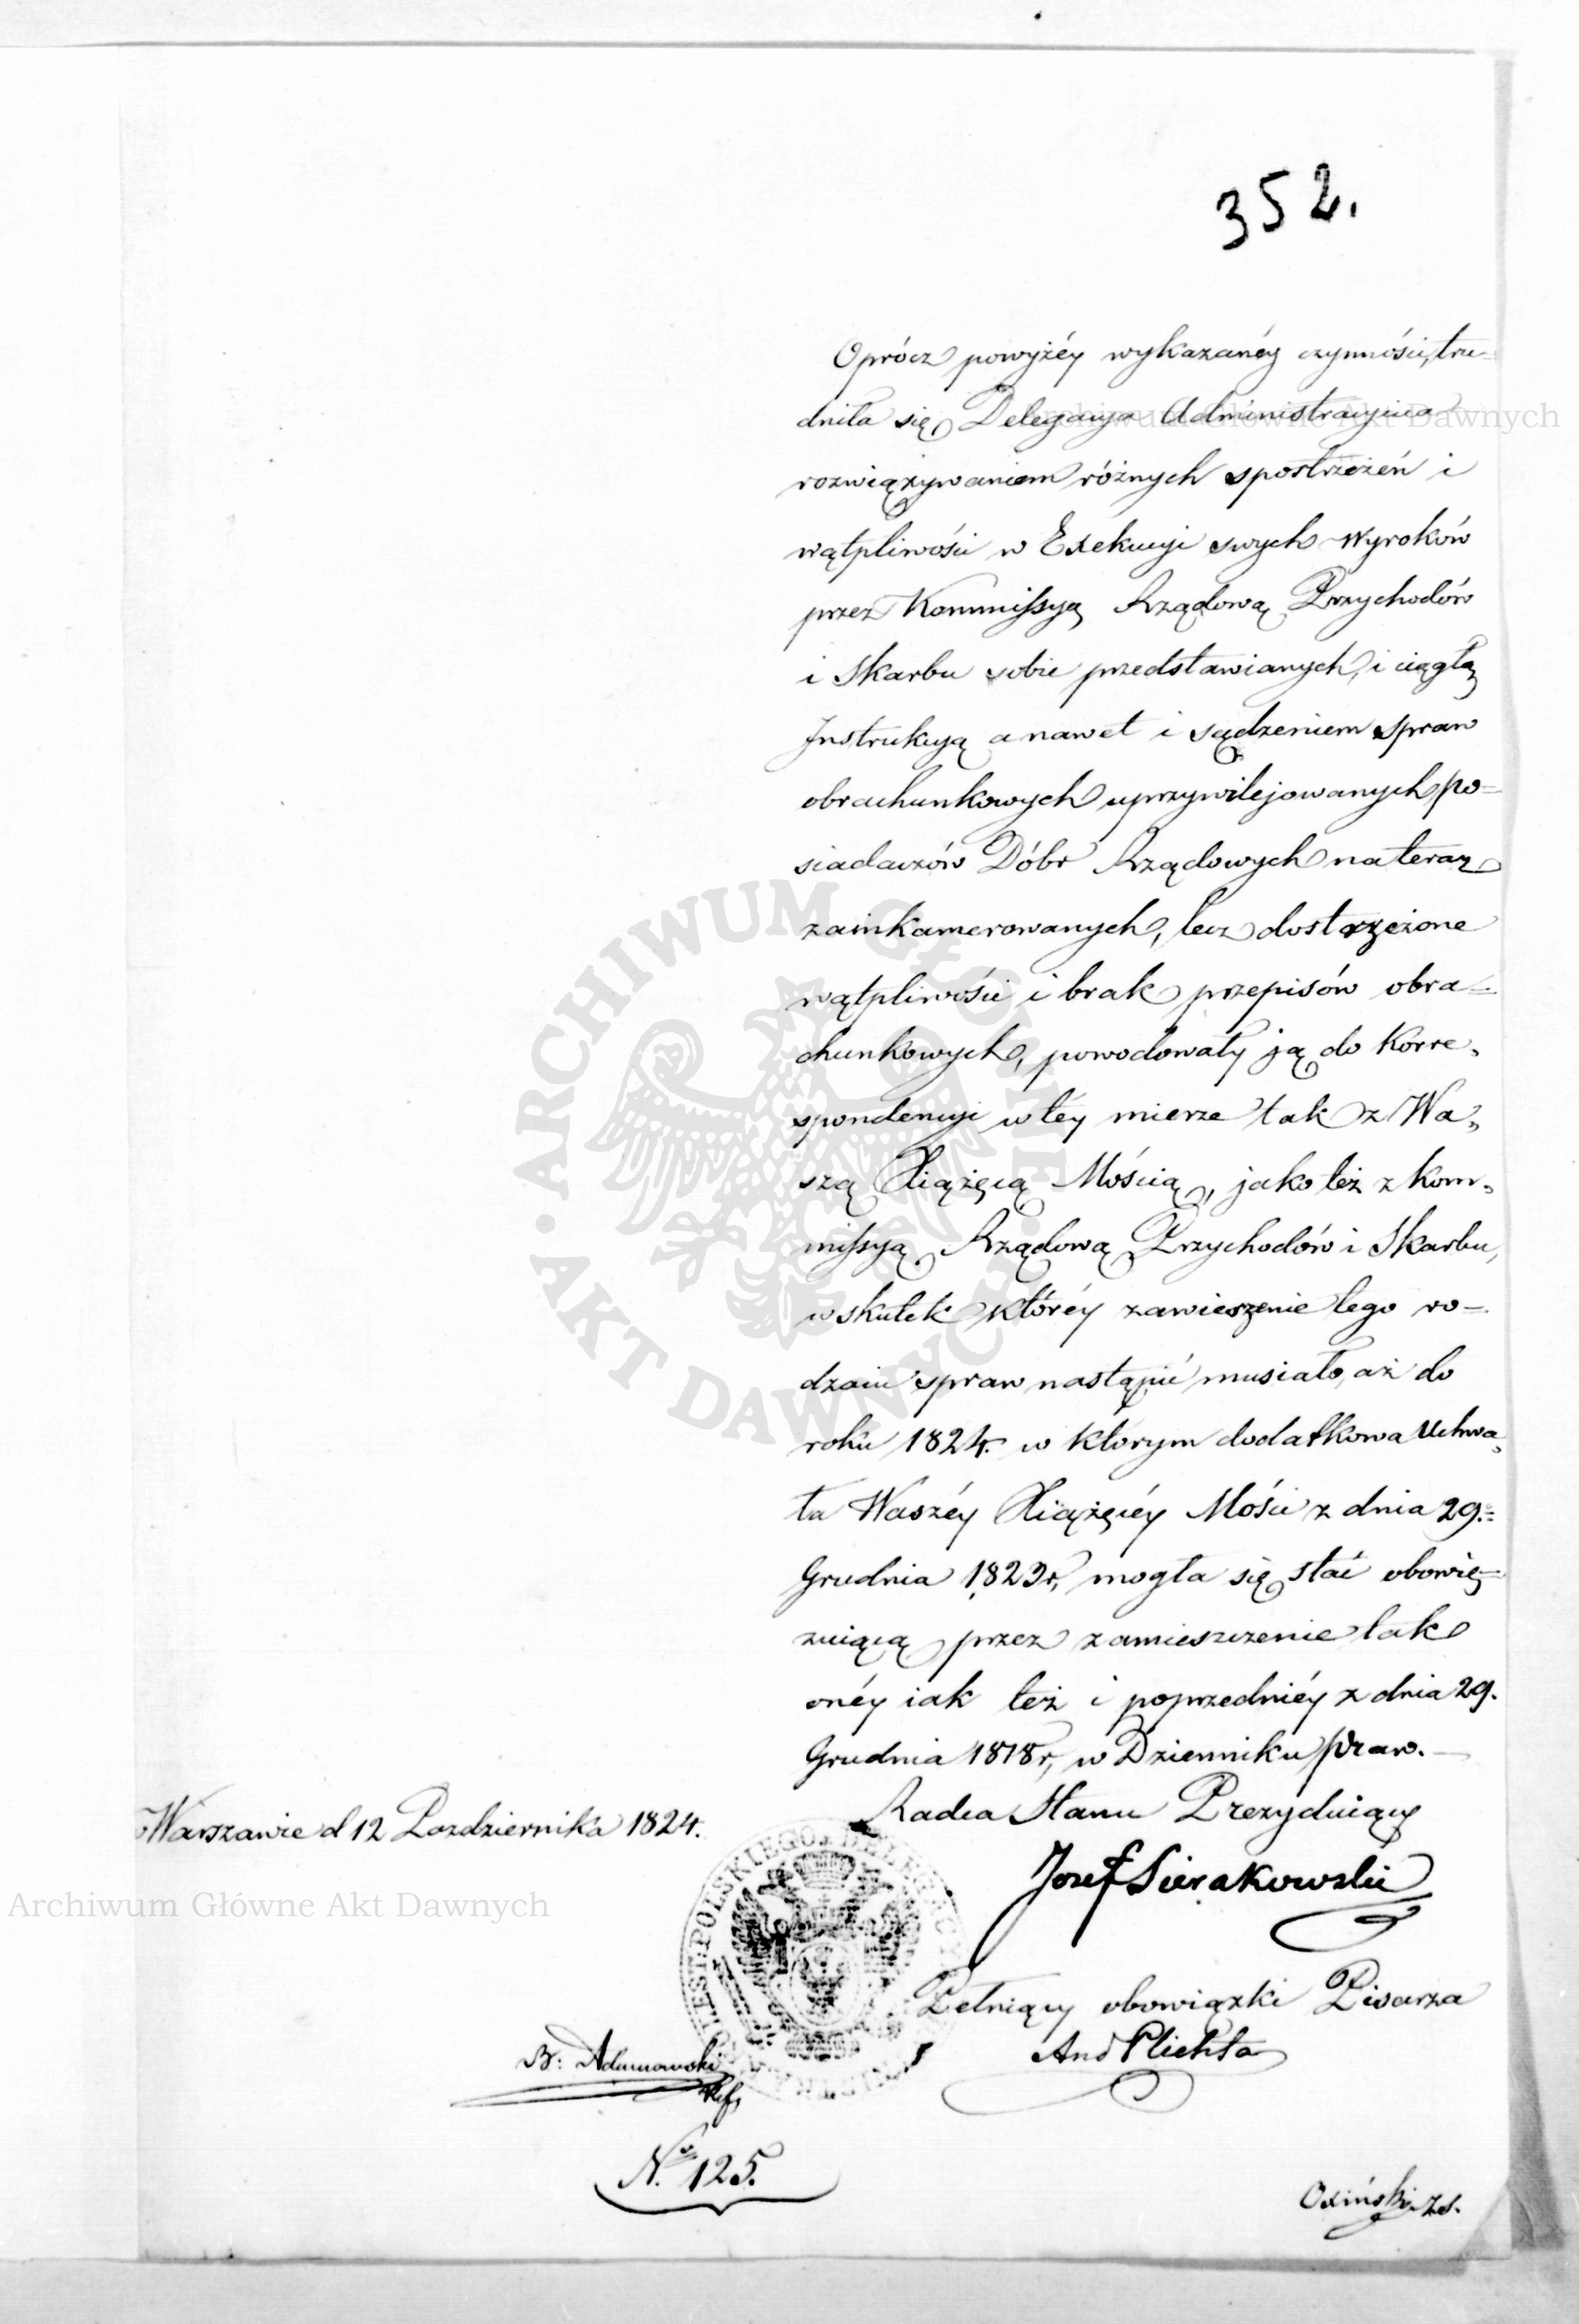 352.
Oprócz powyżéy wykazanéy czynności, tru=
dniła się Delegacya Administracyina
rozwiązywaniem różnych spostrzeżeń i
wątpliwości w Exekucyi swych Wyroków
przez Kommissyą Rządową Przychodów
i Skarbu sobie przedstawianych, i ciągłą
Instrukcyą a nawet i sądzeniem spraw
obrachunkowych uprzywilejowanych po=
siadaczów Dóbr Rządowych na teraz
zainkamerowanych, lecz dostrzeżone
wątpliwości i brak przepisów obra=
chunkowych, powodowały ją do Korre„
spondencyi w téy mierze tak z Wa„
szą Xiążęcą Mością, jako też z Kom„
missyą Rządową Przychodów i Skarbu,
w skutek któréy zawieszenie tego ro=
dzaiu spraw nastąpić musiało, aż do
roku 1824. w którym dodatkowa Uchwa„
ła Waszéy Xiążęcéy Mości z dnia 29.=
Grudnia 1823r, mogła się stać obowię=
zuiącą przez zamieszczenie tak
onéy iak też i poprzedniéy z dnia 29.
Grudnia 1818r, w Dzienniku Praw.—
w Warszawie d 12 Pazdziernika 1824.
Radca Stanu Prezyduiący
Jozef Sierakowski
Pełniący obowiązki Pisarza
And Plichta
B: Adamowski
Ref,
No 125.
Osiński Zs.
ARCHIWUM GŁÓWNE • AKT DAWNYCH •
Archiwum Główne Akt Dawnych
Archiwum Główne Akt Dawnych